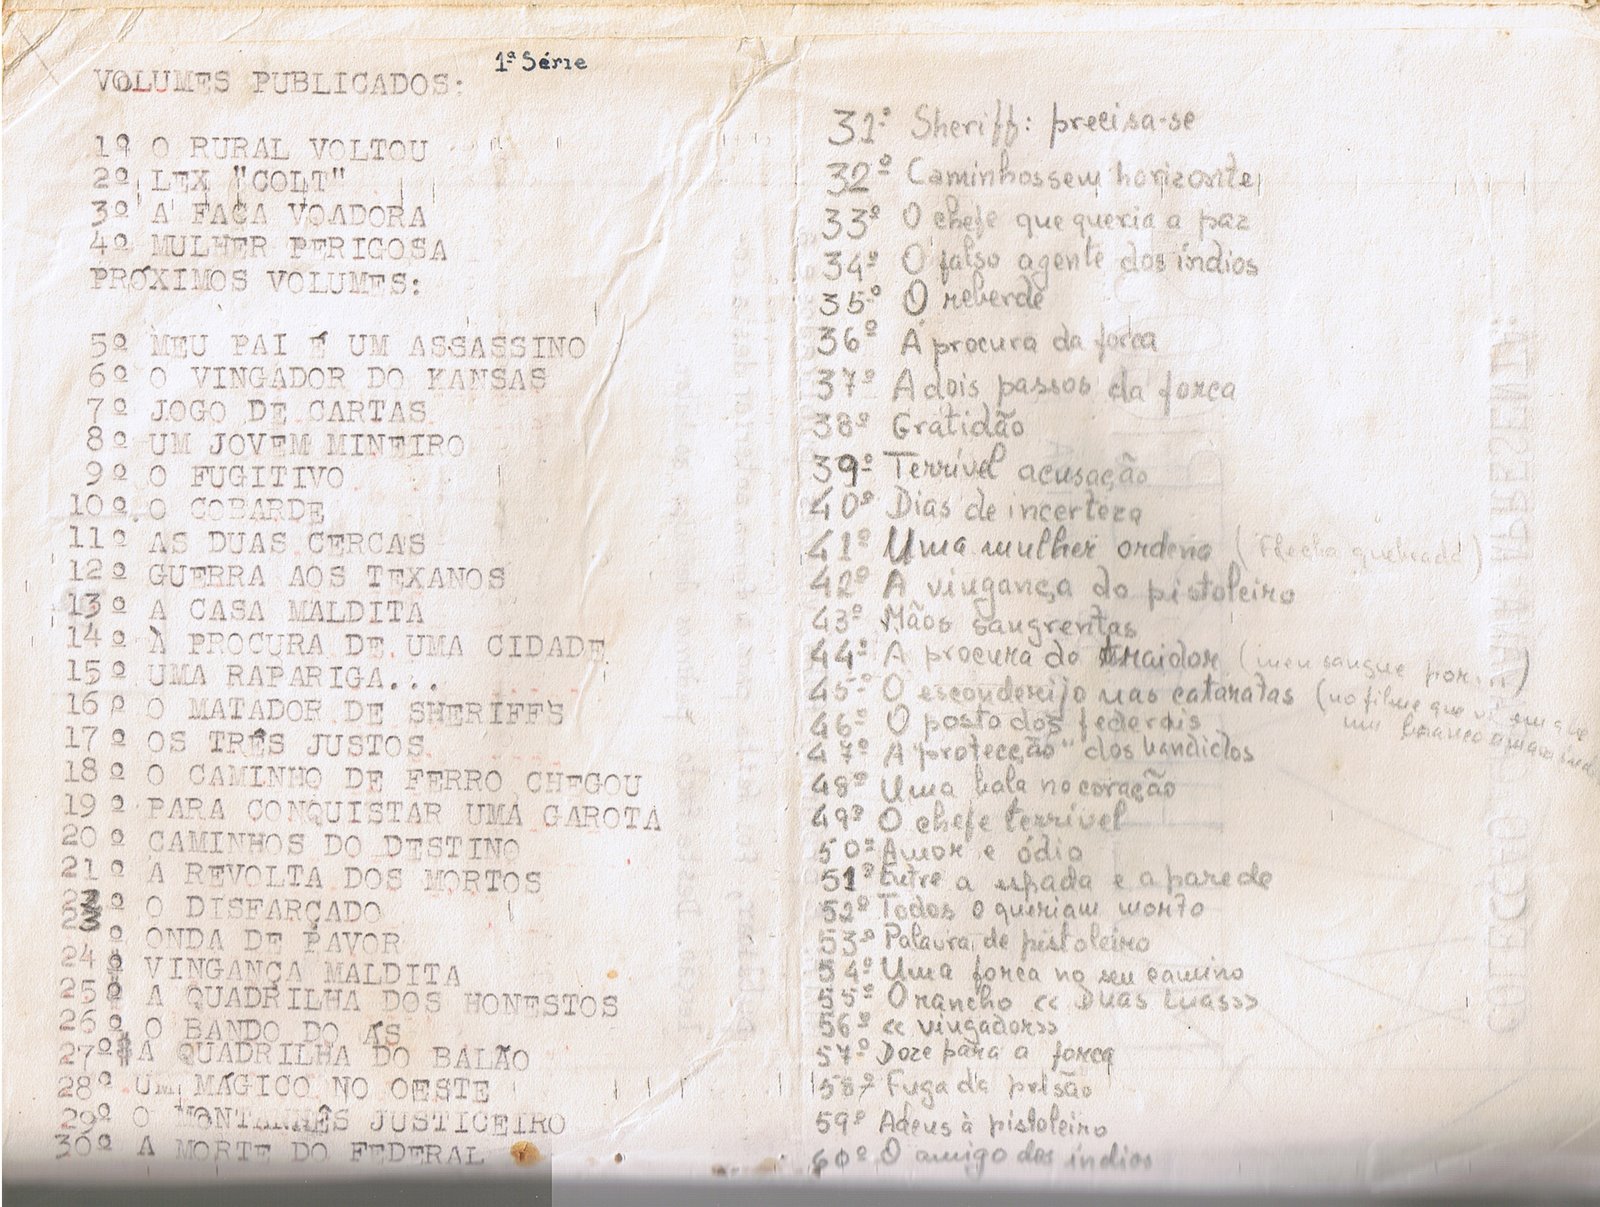 1ª Série
VOLUMES PUBLICADOS:
1º O RURAL VOLTOU
2º LEX "COLT"
3º A FACA VOADORA
4º MULHER PERIGOSA
PRÓXIMOS VOLUMES:
5º MEU PAI É UM ASSASSINO
6º O VINGADOR DO KANSAS
7º JOGO DE CARTAS
8º UM JOVEM MINEIRO
9º O FUGITIVO
10º O COBARDE
11º AS DUAS CERCAS
12º GUERRA AOS TEXANOS
13º A CASA MALDITA
14º À PROCURA DE UMA CIDADE
15º UMA RAPARIGA...
16º O MATADOR DE SHERIFFS
17º OS TRÊS JUSTOS
18º O CAMINHO DE FERRO CHEGOU
19º PARA CONQUISTAR UMA GAROTA
20º CAMINHOS DO DESTINO
21º A REVOLTA DOS MORTOS
º O DISFARÇADO
23º ONDA DE PAVOR
24º VINGANÇA MALDITA
25º A QUADRILHA DOS HONESTOS
26º O BANDO DO ÁS
27º A QUADRILHA DO BALÃO
28º UM MÁGICO NO OESTE
29º O MONTANHÊS JUSTICEIRO
30º A MORTE DO FEDERAL
31º Sheriff: precisa-se
32º Caminhos sem horizonte
33º O chefe que queria a paz
34º O falso agente dos índios
35º O reberde
36º À procura da forca
37º A dois passos da forca
38º Gratidão
39º Terrível acusação
40º Dias de incerteza
41º Uma mulher ordena (Flecha quebrada)
42º A vingança do pistoleiro
43º Mãos sangrentas
44º À procura do traidor (meu sangue por
45º O esconderijo nas cataratas (no filme que vi em que
um branco amava
46º O posto dos federais
47º A "protecção" dos bandidos
48º Uma bala no coração
49º O chefe terrível
50º Amor e ódio
51º Entre a espada e a parede
52º Todos o queriam morto
53º Palavra de pistoleiro
54º Uma forca no seu camino
55º O rancho «Duas Luas»
56º «vingador»
57º Doze para a forca
58º Fuga da prisão
59º Adeus à pistoleiro
60º O amigo dos índios